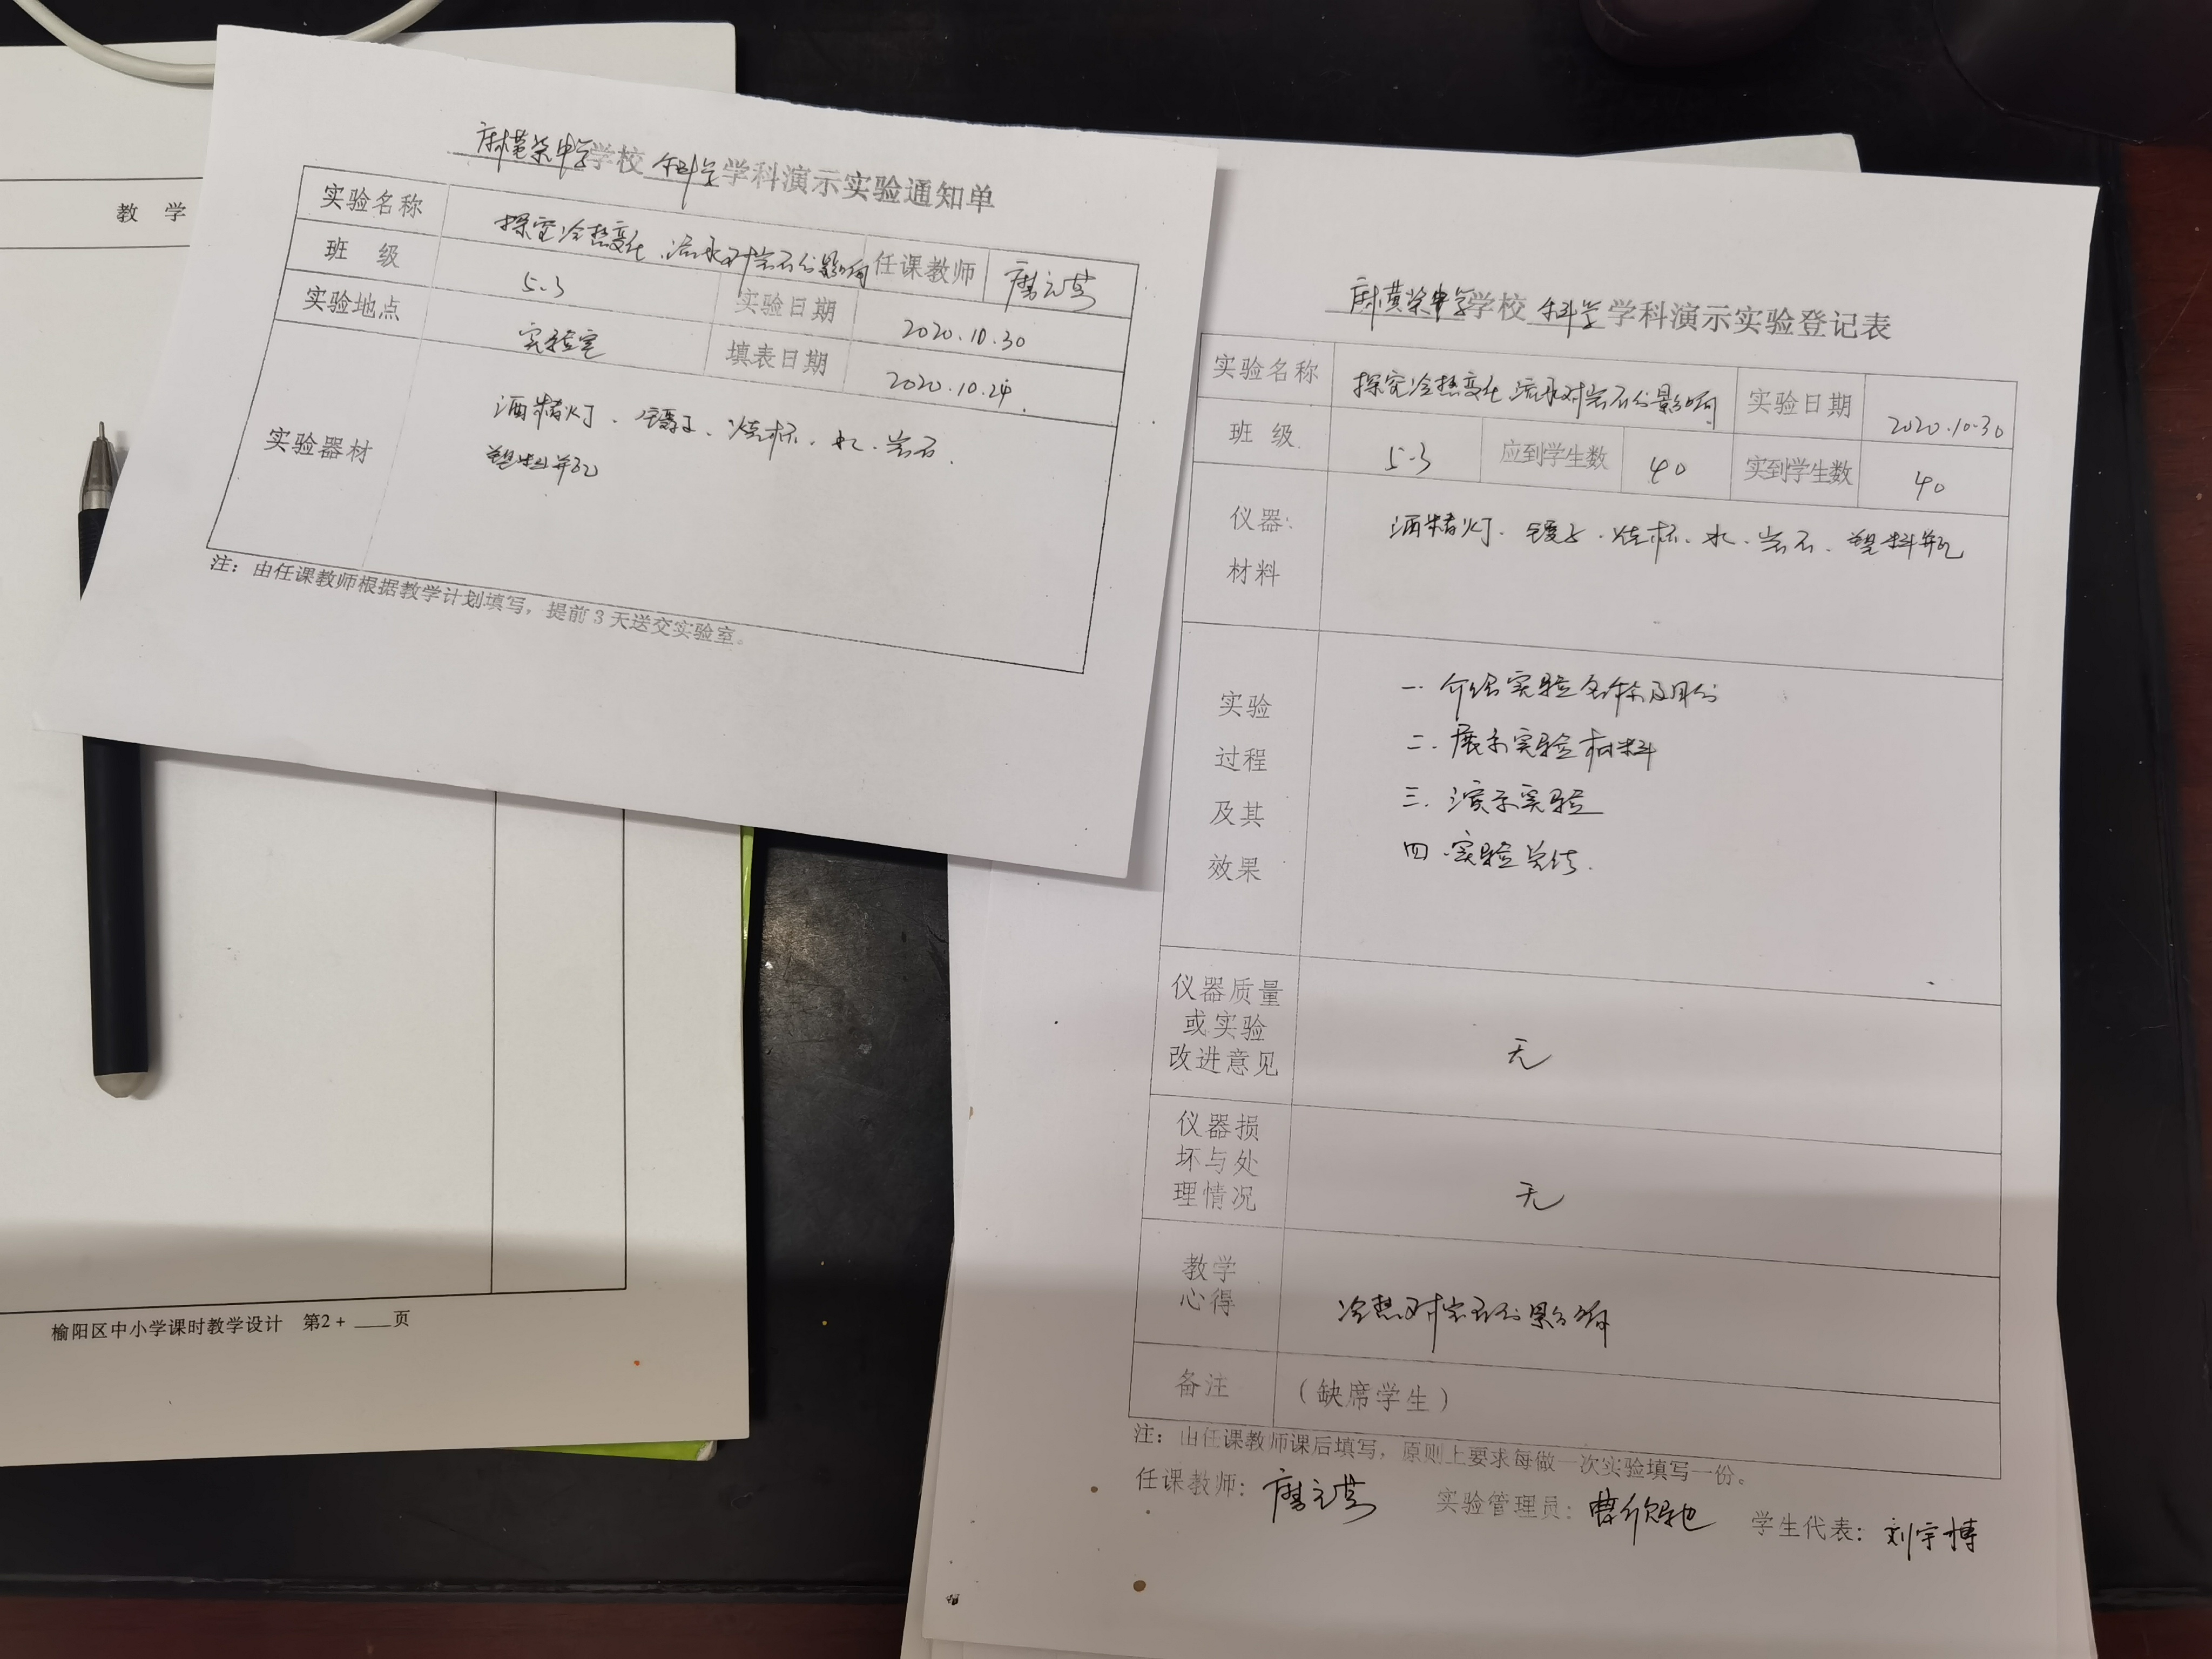 教 学
学校 科学 学科演示实验通知单
实验名称 探究冷热变化、流水对岩石的影响 任课教师
班 级 5.3 实验日期 2020.10.30
实验地点 实验室 填表日期 2020.10.24.
实验器材 酒精灯、镊子、烧杯、水、岩石、
塑料瓶
注：由任课教师根据教学计划填写，提前3天送交实验室。
榆阳区中小学课时教学设计 第2+ ___页
学校 科学 学科演示实验登记表
实验名称 探究冷热变化、流水对岩石的影响 实验日期 2020.10.30
班 级 5.3 应到学生数 40 实到学生数 40
仪器: 酒精灯、镊子、烧杯、水、岩石、塑料瓶
材料
实验 一. 介绍实验名称及目的
过程 二. 展示实验材料
及其 三. 演示实验
效果 四. 实验总结.
仪器质量
或实验
改进意见 无
仪器损
坏与处
理情况 无
教学
心得 冷热对岩石的影响
备注 （缺席学生）
注：由任课教师课后填写，原则上要求每做一次实验填写一份。
任课教师: 实验管理员: 学生代表: 刘宇博